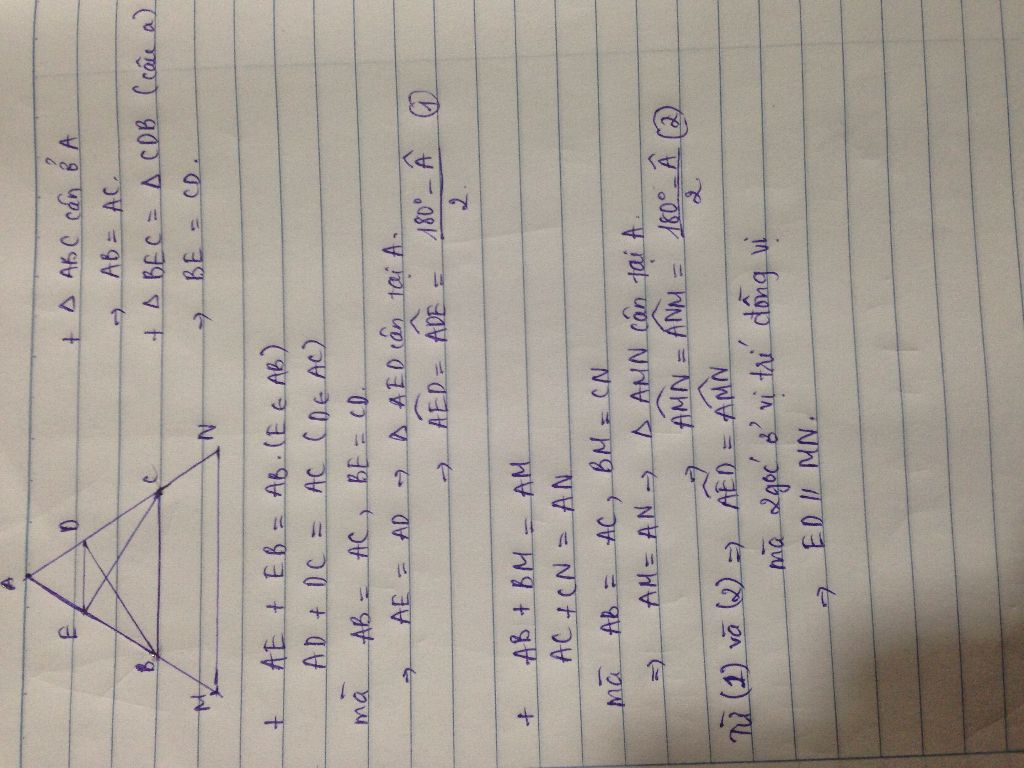 A
E
D
B
C
M
N
+ Δ ABC cân ở A
→ AB = AC.
+ Δ BEC = Δ CDB (câu a)
→ BE = CD.
+ AE + EB = AB. (E ∈ AB)
AD + DC = AC (D ∈ AC)
mà AB = AC, BE = CD.
→ AE = AD → Δ AED cân tại A.
→ \widehat{AED} = \widehat{ADE} = \frac{180° - \widehat{A}}{2.} ①
+ AB + BM = AM
AC + CN = AN
mà AB = AC, BM = CN
⇒ AM = AN → Δ AMN cân tại A.
→ \widehat{AMN} = \widehat{ANM} = \frac{180° - \widehat{A}}{2} ②
Từ (1) và (2) ⇒ \widehat{AED} = \widehat{AMN}
mà 2 góc ở vị trí đồng vị
→ ED // MN.